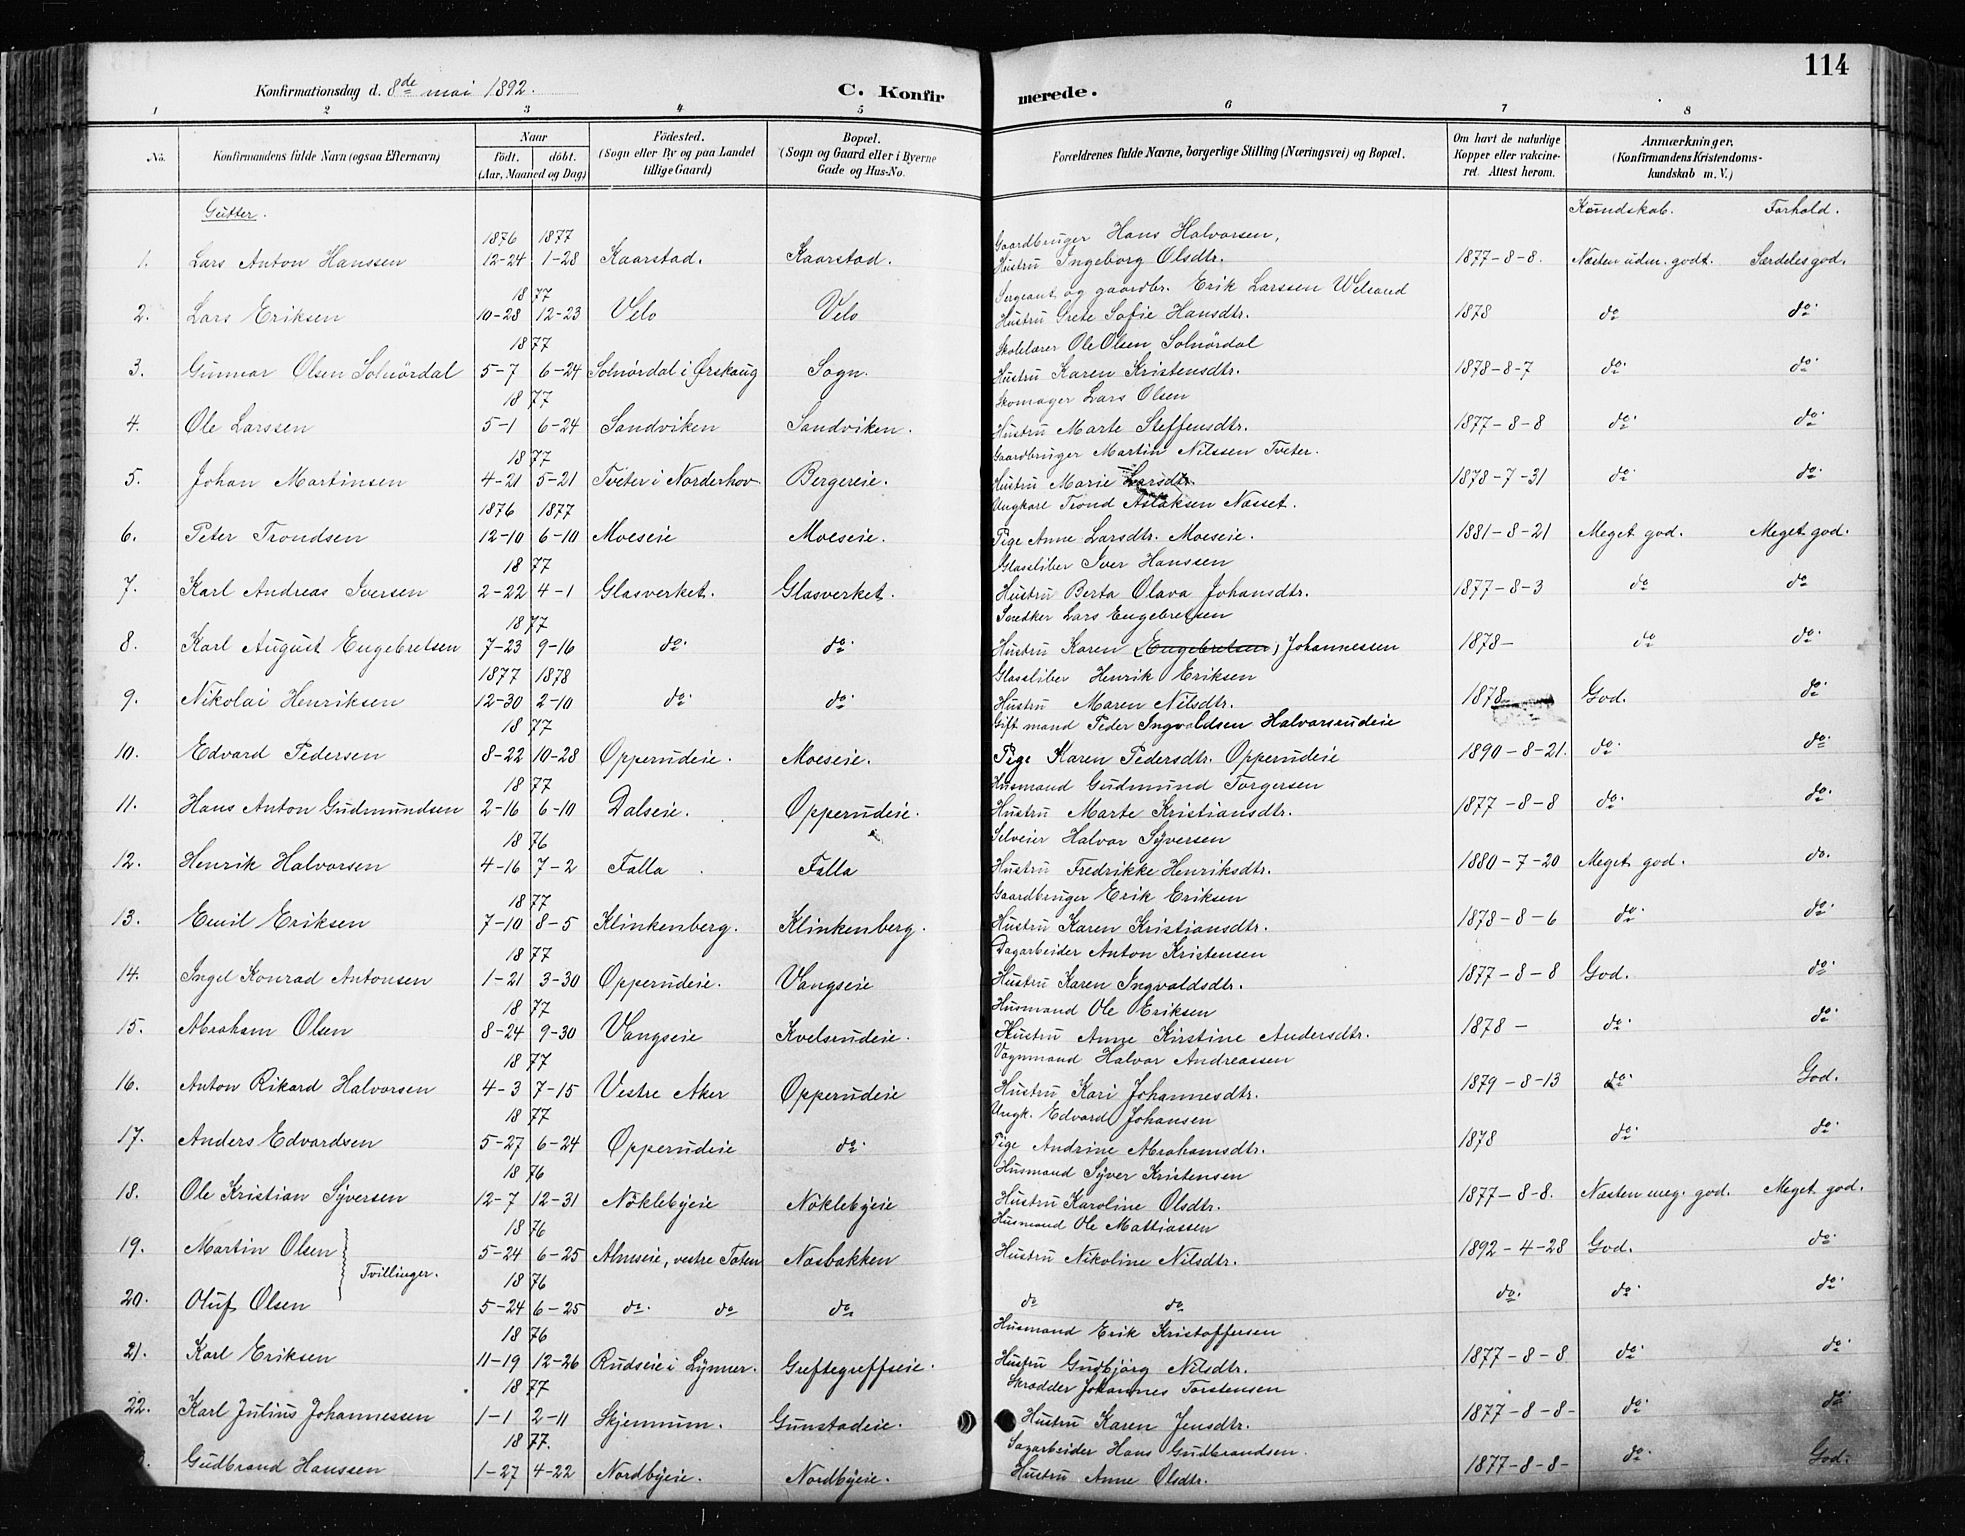 114
Konfirmationsdag d. 8de mai 1892. C. Konfirmerede.
1 2 3 4 5 6 7 8
No. Konfirmandens fulde Navn (ogsaa Efternavn) Naar født. døbt. (Aar, Maaned og Dag) Fødested. (Sogn eller By og paa Landet tillige Gaard) Bopæl. (Sogn og Gaard eller i Byerne Gade og Hus-No. Forældrenes fulde Navne, borgerlige Stilling (Næringsvei) og Bopæl. Om havt de naturlige Kopper eller vakcineret. Attest herom. Anmærkninger. (Konfirmandens Kristendomskundskab m. V.)
Gutter. Kundskab. Forhold.
1876 1877 Gaardbruger Hans Halvorsen,
1. Lars Anton Hanssen 12-24 1-28 Kaarstad. Kaarstad. Hustru Ingeborg Olsdtr. 1877-8-8. Næsten udm. godt. Særdeles god.
1877 Sergeant og gaardbr. Erik Larssen Velsand
2. Lars Eriksen 10-28 12-23 Velo Velo Hustru Grete Sofie Hansdtr. 1878 do do
1877 Skolelærer Ole Olsen Solnørdal
3. Gunnar Olsen Solnørdal 5-7 6-24 Solnørdal i Ørskaug Sogn. Hustru Karen Kristensdtr. 1878-8-7 do do
1877 Skomager Lars Olsen
4. Ole Larssen 5-1 6-24 Sandviken Sandviken. Hustru Marte Steffensdtr. 1877-8-8 do do
1877 Gaardbruger Martin Nilssen Tveter.
5. Johan Martinsen 4-21 5-21 Tveter i Norderhov Bergereie. Hustru Marie Larsdtr. 1878-7-31 do do
1876 1877 Ungkarl Trond Aslaksen Næsset.
6. Peter Trondsen 12-10 6-10 Moeseie Moeseie. Pige Anne Larsdtr. Moeseie. 1881-8-21 Meget god. Meget god.
1877 Glassliber Iver Hanssen
7. Karl Andreas Iversen 2-22 4-1 Glasverket. Glasverket. Hustru Berta Olava Johansdtr. 1877-8-3 do do
1877 Snedker Lars Engebretsen
8. Karl August Engebretsen 7-23 9-16 do do Hustru Karen (Engebretsen) Johannessen 1878- do do
1877 1878 Glassliber Henrik Eriksen
9. Nikolai Henriksen 12-30 2-10 do do Hustru Maren Nilsdtr. 1878 God. do
1877 Gift mand Peder Ingvaldsen Halvorsrudeie
10. Edvard Pedersen 8-22 10-28 Opperudeie. Moeseie. Pige Karen Pedersdtr. Opperudeie 1890-8-21. do do
1877 Husmand Gudmund Torgersen
11. Hans Anton Gudmundsen 2-16 6-10 Dalseie. Opperudeie. Hustru Marte Kristiansdtr. 1877-8-8 do do
1876 Selveier Halvor Syversen
12. Henrik Halvorsen 4-16 7-2 Falla Falla Hustru Fredrikke Henriksdtr. 1880-7-20 Meget god. do.
1877 Gaardbruger Erik Eriksen
13. Emil Eriksen 7-10 8-5 Klinkenberg. Klinkenberg. Hustru Karen Kristiansdtr. 1878-8-6 do do
1877 Dagarbeider Anton Kristensen
14. Ingel Konrad Antonsen 1-21 3-30 Opperudeie. Vangseie Hustru Karen Ingvaldsdtr. 1877-8-8 God. do
1877 Husmand Ole Eriksen
15. Abraham Olsen 8-24 9-30 Vangseie Kvelsrudeie. Hustru Anne Kirstine Andersdtr. 1878- do do
1877 Vognmand Halvor Andreassen
16. Anton Rikard Halvorsen 4-3 7-15 Vestre Aker Opperudeie Hustru Kari Johannesdtr. 1879-8-13 do God.
1877 Ungk. Edvard Johansen
17. Anders Edvardsen 5-27 6-24 Opperudeie do Pige Andrine Abrahamsdtr. 1878 do do
1876 Husmand Syver Kristensen
18. Ole Kristian Syversen 12-7 12-31 Nöklebyeie Nöklebyeie Hustru Karoline Olsdtr. 1877-8-8. Næsten meg. god. Meget god.
1876 Husmand Ole Mattiassen
19. Martin Olsen 5-24 6-25 Almseie, vestre Toten Næsbakken Hustru Nikoline Nilsdtr. 1892-4-28 God. do
Tvillinger. 1876
20. Oluf Olsen 5-24 6-25 do do do do do do. do do
1876 Husmand Erik Kristoffersen
21. Karl Eriksen 11-19 12-26 Rudseie i Lynner. Greftegreffseie. Hustru Gudbjørg Nilsdtr. 1877-8-8 do do
1877 Skrædder Johannes Torstensen
22. Karl Julius Johannessen 1-1 2-11 Skjennum. Gunstadeie. Hustru Karen Jensdtr. 1877-8-8- do do
1877. Sagarbeider Hans Gudbrandsen.
Gudbrand Hanssen 1-27 4-22 Nordbyeie. Nordbyeie. Hustru Anne Olsdtr. 1877-8-8- do God.